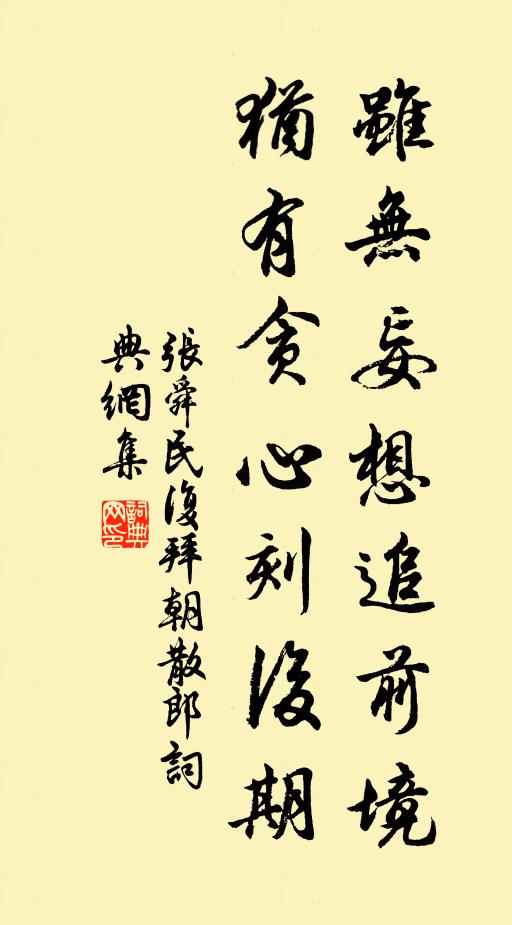 雖無妄想追前境
猶有貪心刻後期
張舜民復拜朝散郎詞
典網集
詞典
网印